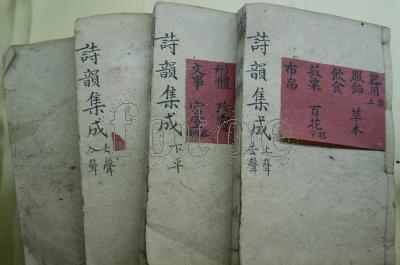 器用上
服飾 草木
飲食
菽粟 百花
布帛
詩韻集成
上聲
去聲
文事
詩韻集成
下平
詩韻集成
去聲
入聲